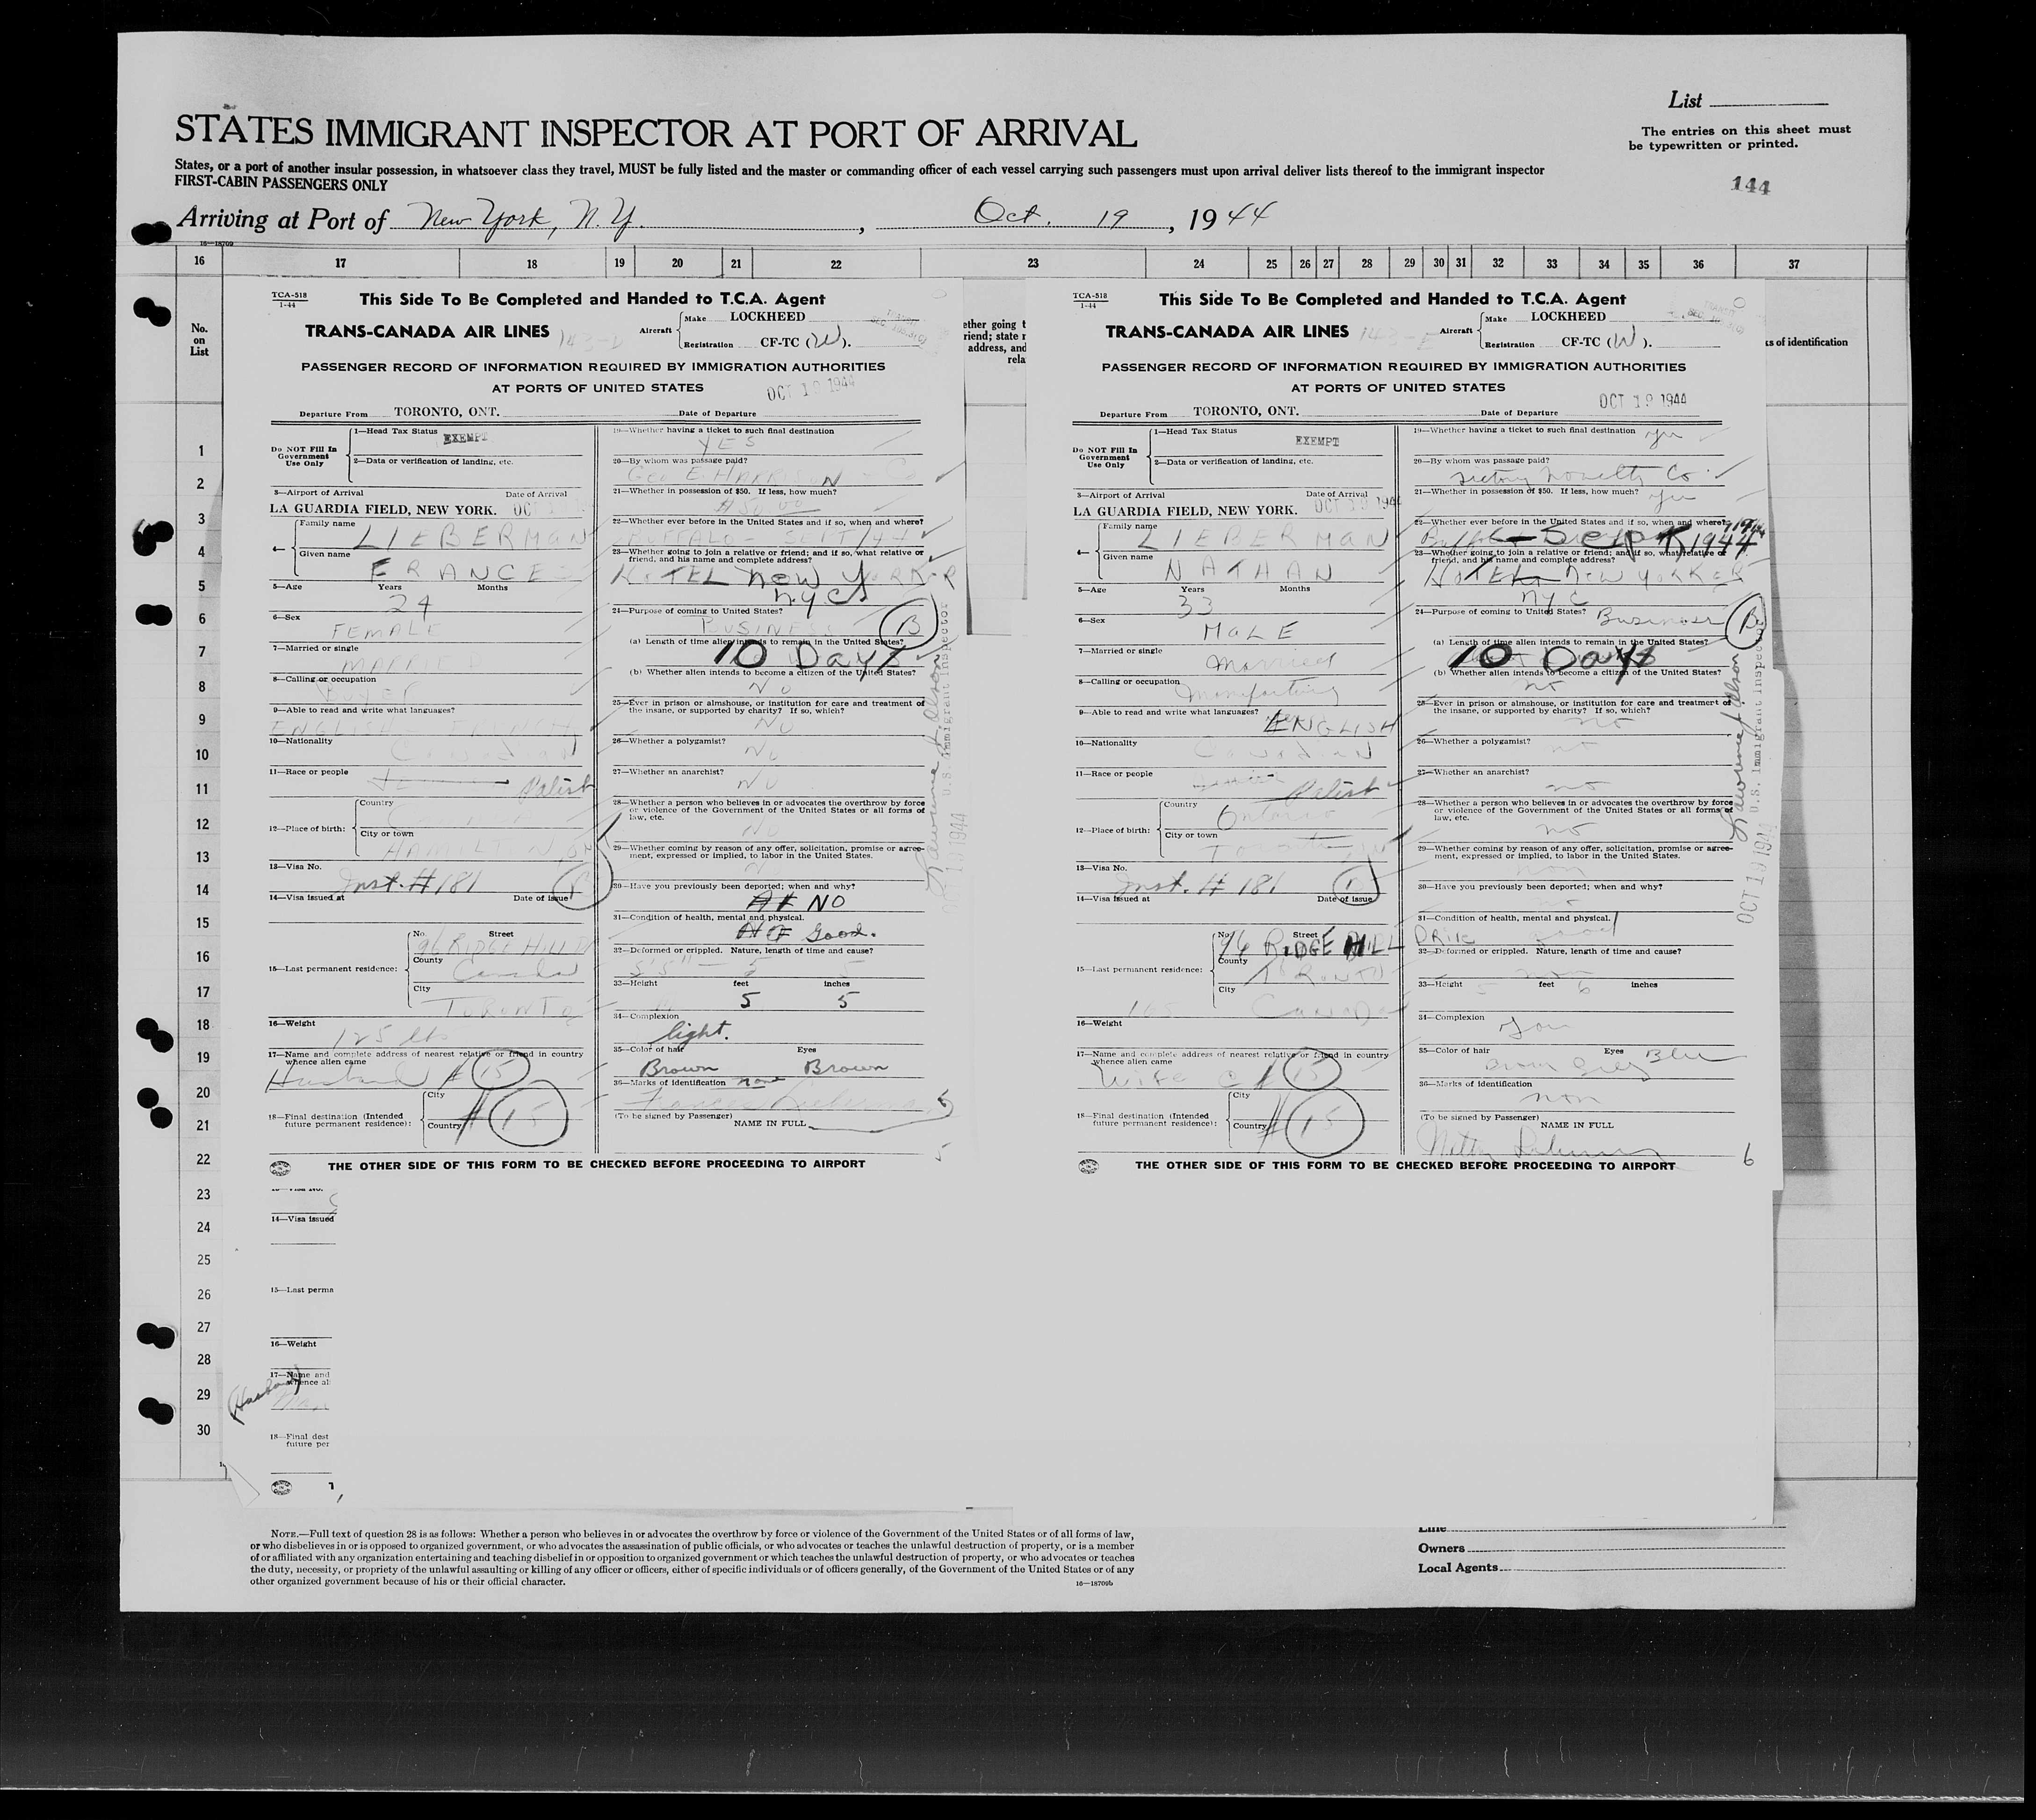 List
STATES IMMIGRANT INSPECTOR AT PORT OF ARRIVAL
The entries on this sheet must
be typewritten or printed.
States, or a port of another insular possession, in whatsoever class they travel, MUST be fully listed and the master or commanding officer of each vessel carrying such passengers must upon arrival deliver lists thereof to the immigrant inspector
FIRST-CABIN PASSENGERS ONLY
144
Arriving at Port of New York, N.Y., Oct. 19, 1944
16—18709
16 17 18 19 20 21 22 23 24 25 26 27 28 29 30 31 32 33 34 35 36 37
No.
on
List
1
2
3
4
5
6
7
8
9
10
11
12
13
14
15
16
17
18
19
20
21
22
23
24
25
26
27
28
29
30
ether going t
riend; state r
address, and
rela
ks of identification
TCA-518
1-44
This Side To Be Completed and Handed to T.C.A. Agent
TRANS-CANADA AIR LINES
Aircraft Make LOCKHEED
Registration CF-TC (W).
PASSENGER RECORD OF INFORMATION REQUIRED BY IMMIGRATION AUTHORITIES
AT PORTS OF UNITED STATES
OCT 19 1944
Departure From TORONTO, ONT. Date of Departure
Do NOT Fill In
Government
Use Only
1—Head Tax Status
EXEMPT
2—Data or verification of landing, etc.
3—Airport of Arrival Date of Arrival
LA GUARDIA FIELD, NEW YORK. OCT
4— Family name
LIEBERMAN
Given name
FRANCES
5—Age Years Months
24
6—Sex
FEMALE
7—Married or single
MARRIED
8—Calling or occupation
9—Able to read and write what languages?
ENGLISH
10—Nationality
Canadian
11—Race or people
Polish
12—Place of birth: Country
City or town
HAMILTON ON
13—Visa No.
Inst. # 181
14—Visa issued at Date of issue
15—Last permanent residence: No. Street
96 RIDGE HILL D
County
Canada
City
TORONTO
16—Weight
125 lbs
17—Name and complete address of nearest relative or friend in country
whence alien came
Husband # 15
18—Final destination (Intended
future permanent residence): City
Country # 15
19—Whether having a ticket to such final destination
YES
20—By whom was passage paid?
Geo E HARRISON Co
21—Whether in possession of $50. If less, how much?
$50.00
22—Whether ever before in the United States and if so, when and where?
BUFFALO - SEPT/44
23—Whether going to join a relative or friend; and if so, what relative or
friend, and his name and complete address?
HOTEL New YORKER
NYC
24—Purpose of coming to United States?
BUSINESS B
(a) Length of time alien intends to remain in the United States?
10 Days
(b) Whether alien intends to become a citizen of the United States?
No
25—Ever in prison or almshouse, or institution for care and treatment of
the insane, or supported by charity? If so, which?
No
26—Whether a polygamist?
No
27—Whether an anarchist?
No
28—Whether a person who believes in or advocates the overthrow by force
or violence of the Government of the United States or all forms of
law, etc.
No
29—Whether coming by reason of any offer, solicitation, promise or agree-
ment, expressed or implied, to labor in the United States.
30—Have you previously been deported; when and why?
NO
31—Condition of health, mental and physical.
Good.
32—Deformed or crippled. Nature, length of time and cause?
33—Height feet inches
5 5
34—Complexion
light.
35—Color of hair Eyes
Brown Brown
36—Marks of identification none
Frances Lieberman
(To be signed by Passenger)
NAME IN FULL
5
THE OTHER SIDE OF THIS FORM TO BE CHECKED BEFORE PROCEEDING TO AIRPORT
U.S. Immigrant Inspector
OCT 19 1944
TCA-518
1-44
This Side To Be Completed and Handed to T.C.A. Agent
TRANS-CANADA AIR LINES 143-E
Aircraft Make LOCKHEED
Registration CF-TC (W).
PASSENGER RECORD OF INFORMATION REQUIRED BY IMMIGRATION AUTHORITIES
AT PORTS OF UNITED STATES
OCT 19 1944
Departure From TORONTO, ONT. Date of Departure
Do NOT Fill In
Government
Use Only
1—Head Tax Status
EXEMPT
2—Data or verification of landing, etc.
3—Airport of Arrival Date of Arrival
LA GUARDIA FIELD, NEW YORK. OCT 19 1944
4— Family name
LIEBERMAN
Given name
NATHAN
5—Age Years Months
33
6—Sex
MALE
7—Married or single
Married
8—Calling or occupation
9—Able to read and write what languages?
ENGLISH
10—Nationality
Canadian
11—Race or people
Polish
12—Place of birth: Country
Ontario
City or town
13—Visa No.
Inst. # 181
14—Visa issued at Date of issue
15—Last permanent residence: No. Street
96 RIDGE HILL DRIVE
County
TORONTO
City
Canada
16—Weight
165
17—Name and complete address of nearest relative or friend in country
whence alien came
Wife # 15
18—Final destination (Intended
future permanent residence): City
Country # 15
19—Whether having a ticket to such final destination
yes
20—By whom was passage paid?
Novelty Co
21—Whether in possession of $50. If less, how much?
yes
22—Whether ever before in the United States and if so, when and where?
Buffalo - Sept 1944
23—Whether going to join a relative or friend; and if so, what relative or
friend, and his name and complete address?
HOTEL New YORKER
NYC
24—Purpose of coming to United States?
Business B
(a) Length of time alien intends to remain in the United States?
10 Days
(b) Whether alien intends to become a citizen of the United States?
no
25—Ever in prison or almshouse, or institution for care and treatment of
the insane, or supported by charity? If so, which?
no
26—Whether a polygamist?
no
27—Whether an anarchist?
no
28—Whether a person who believes in or advocates the overthrow by force
or violence of the Government of the United States or all forms of
law, etc.
no
29—Whether coming by reason of any offer, solicitation, promise or agree-
ment, expressed or implied, to labor in the United States.
30—Have you previously been deported; when and why?
no
31—Condition of health, mental and physical.
good
32—Deformed or crippled. Nature, length of time and cause?
33—Height feet inches
5 6
34—Complexion
35—Color of hair Eyes
Blue
36—Marks of identification
non
(To be signed by Passenger)
NAME IN FULL
6
THE OTHER SIDE OF THIS FORM TO BE CHECKED BEFORE PROCEEDING TO AIRPORT
U.S. Immigrant Inspector
OCT 19 1944
14—Visa issued
15—Last perma
16—Weight
17—Name and
whence ali
(Husband)
18—Final dest
future per
NOTE.—Full text of question 28 is as follows: Whether a person who believes in or advocates the overthrow by force or violence of the Government of the United States or of all forms of law,
or who disbelieves in or is opposed to organized government, or who advocates the assassination of public officials, or who advocates or teaches the unlawful destruction of property, or is a member
of or affiliated with any organization entertaining and teaching disbelief in or opposition to organized government or which teaches the unlawful destruction of property, or who advocates or teaches
the duty, necessity, or propriety of the unlawful assaulting or killing of any officer or officers, either of specific individuals or of officers generally, of the Government of the United States or of any
other organized government because of his or their official character.
16—18709b
Line
Owners
Local Agents